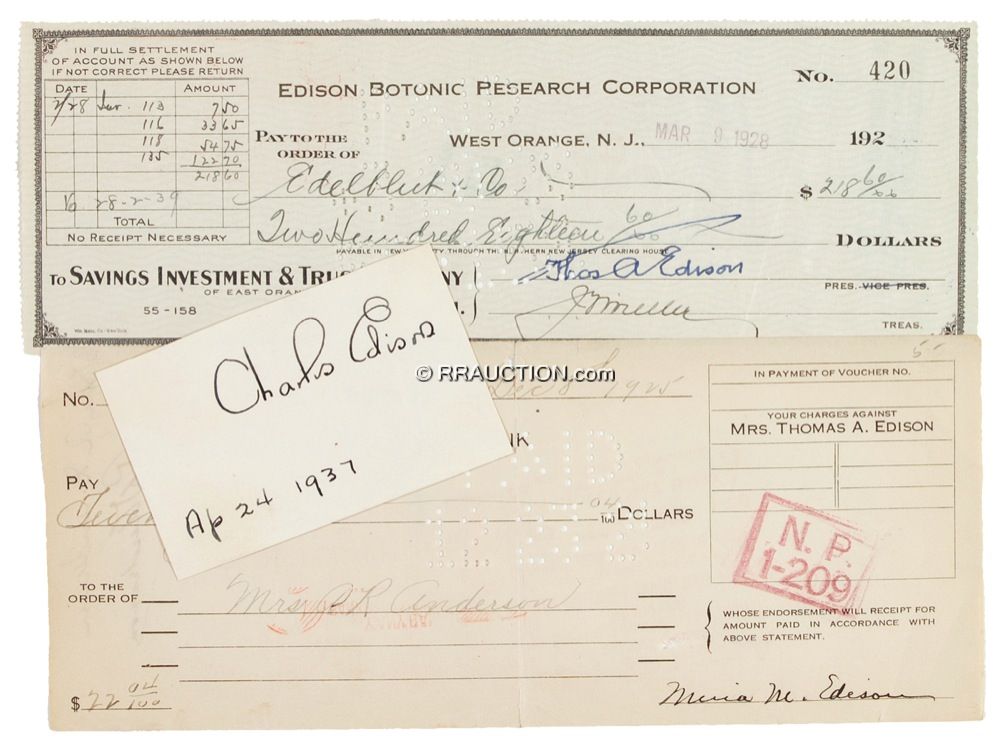 IN FULL SETTLEMENT
OF ACCOUNT AS SHOWN BELOW
IF NOT CORRECT PLEASE RETURN
DATE AMOUNT
2/28 Inv. 113 7 50
116 33 65
118 54 75
135 122 70
218 60
28-2-39
TOTAL
NO RECEIPT NECESSARY
No. 420
EDISON BOTONIC PESEARCH CORPORATION
WEST ORANGE, N. J., MAR 9 1928 192
PAY TO THE
ORDER OF
Edelblut & Co $ 218 60/xx
Two Hundred Eighteen 60/xx DOLLARS
TO SAVINGS INVESTMENT & TRU NY
OF EAST ORAN
55-158
Thos A Edison
PRES. VICE PRES.
J V Miller
TREAS.
Charles Edison
Ap 24 1937
© RRAUCTION.com
No. Dec 8 1925
NK
PAY
Twen 04/100 DOLLARS
TO THE
ORDER OF
Mrs Anderson
$ 22 04/100
IN PAYMENT OF VOUCHER NO.
YOUR CHARGES AGAINST
MRS. THOMAS A. EDISON
N. P.
1-209
WHOSE ENDORSEMENT WILL RECEIPT FOR
AMOUNT PAID IN ACCORDANCE WITH
ABOVE STATEMENT.
Mina M. Edison